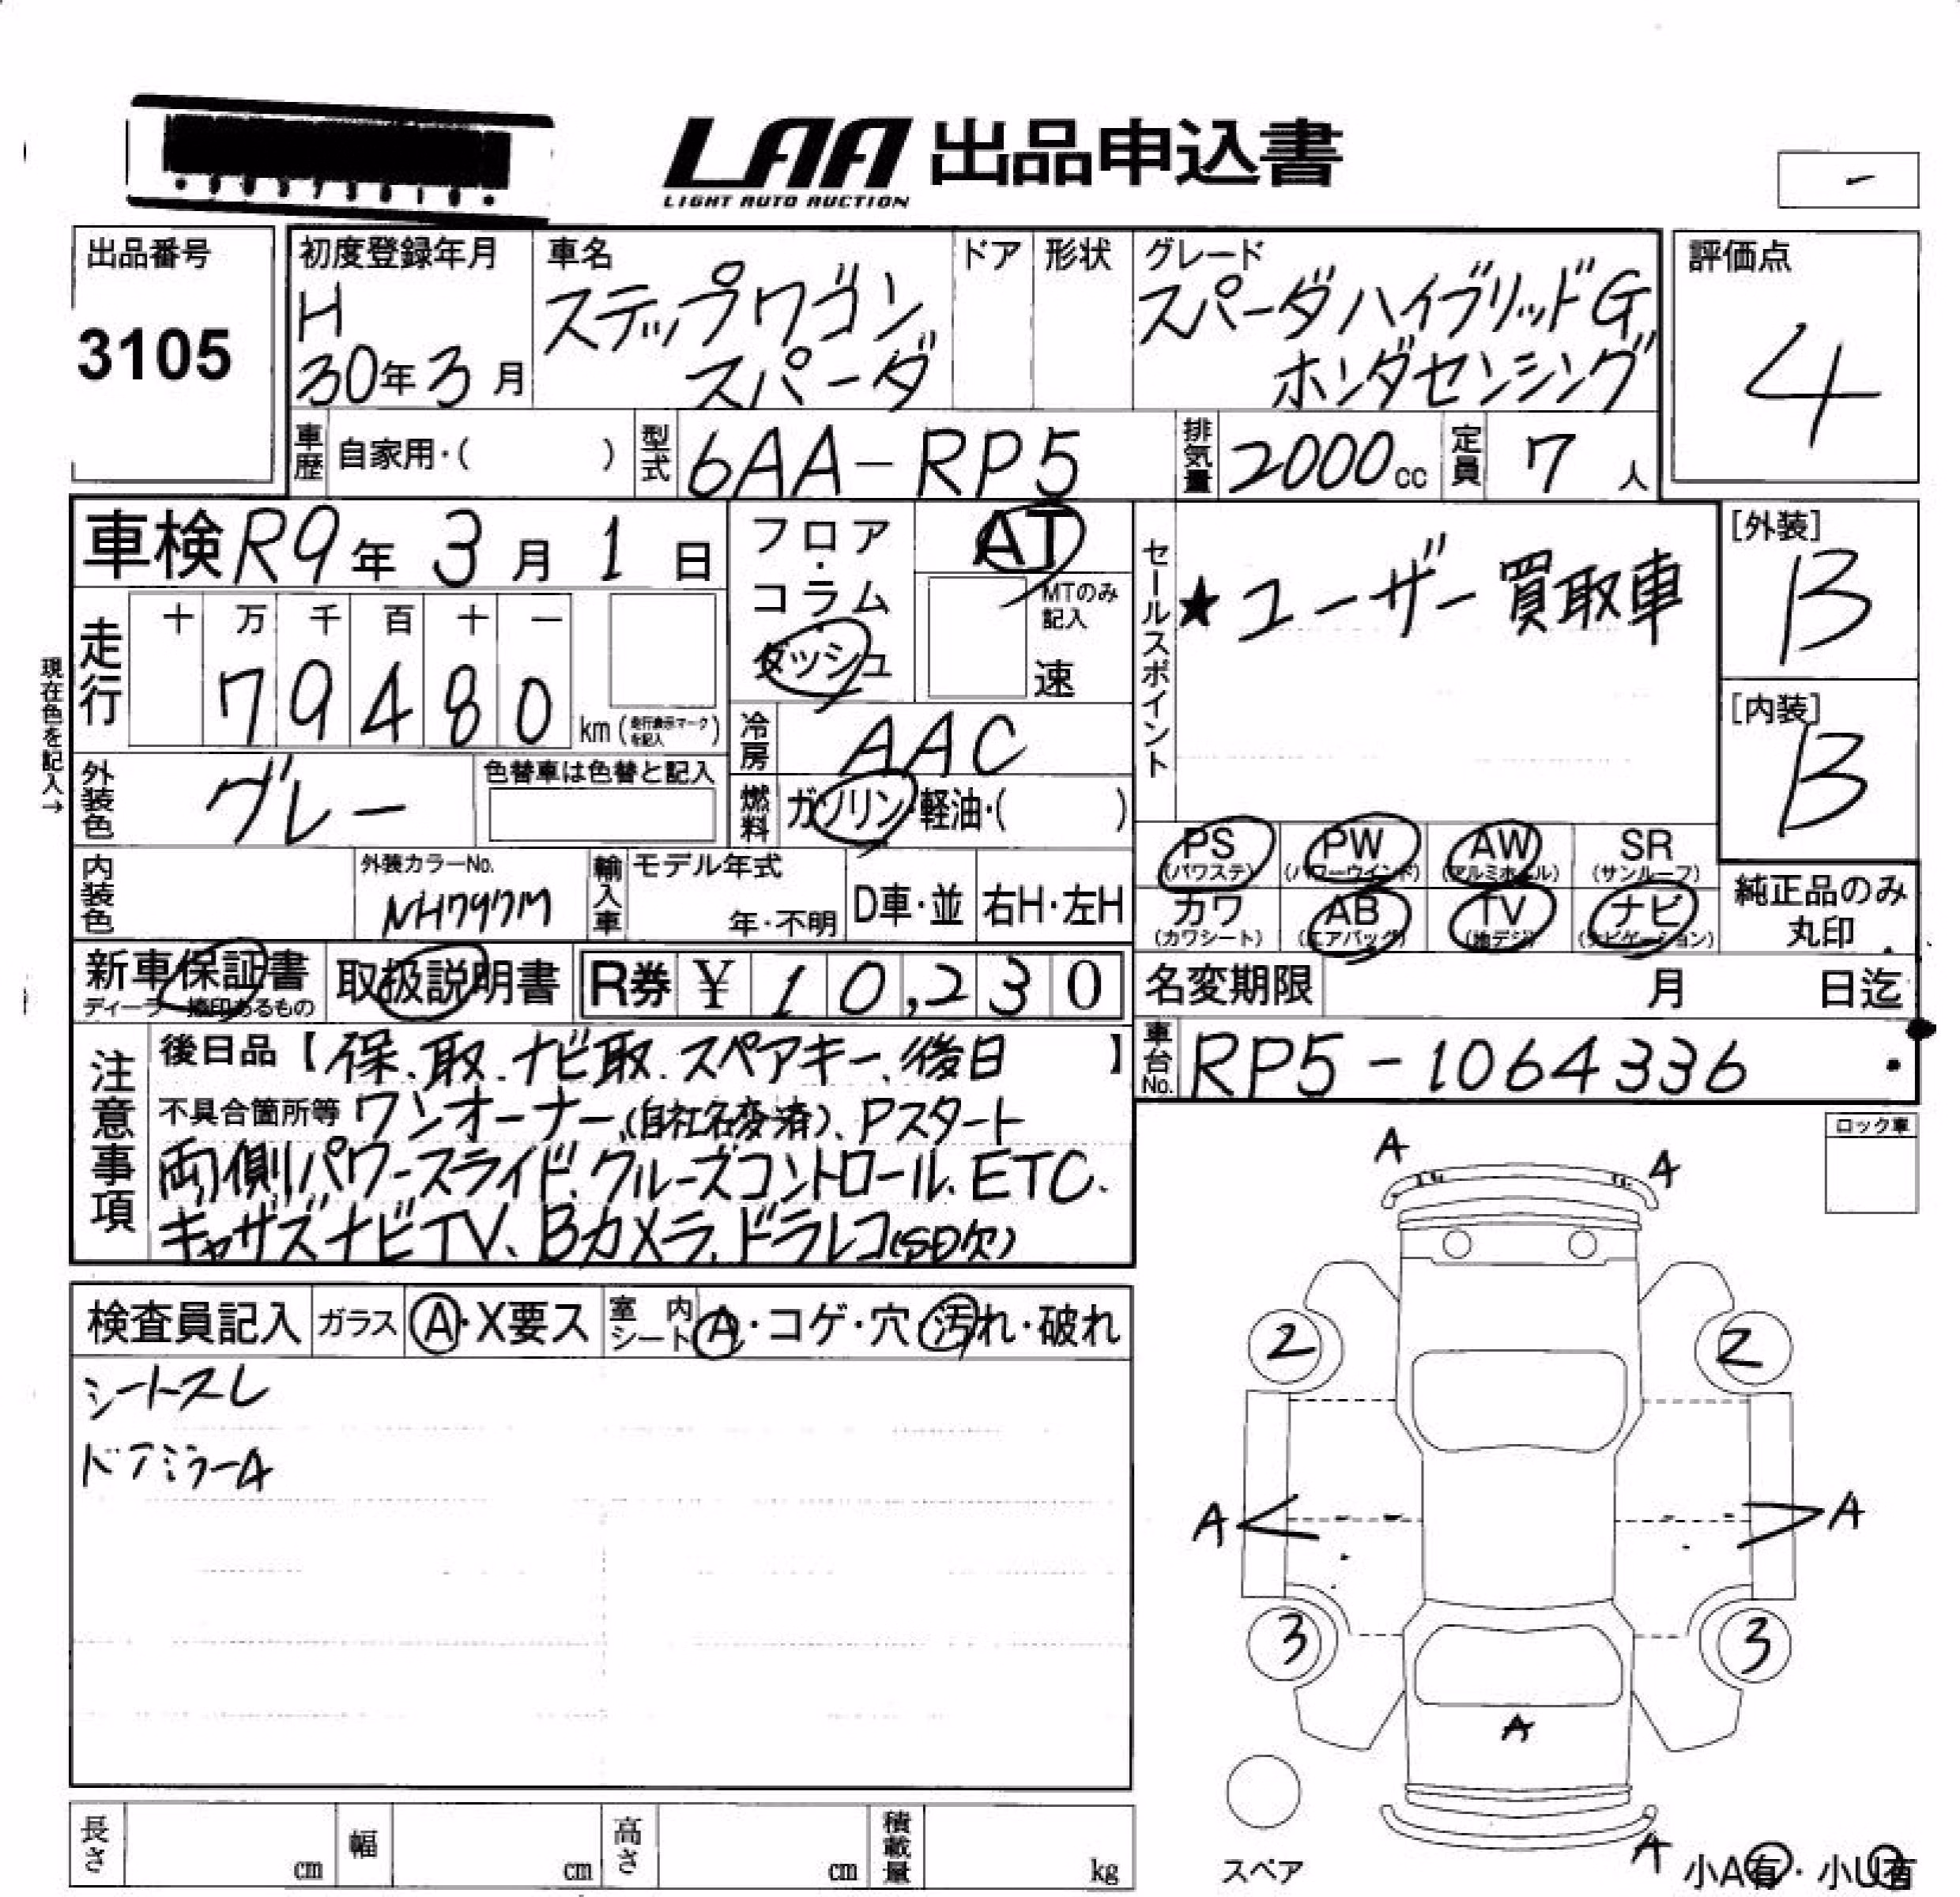 LAA 出品申込書
LIGHT AUTO AUCTION
-
出品番号
3105
初度登録年月
H
30年3月
車名
ステップワゴン
スパーダ
ドア
形状
グレード
スパーダハイブリッドG
ホンダセンシング
評価点
4
車歴 自家用・( )
型式 6AA-RP5
排気量 2000cc
定員 7人
車検 R9年3月1日
現在色を記入→
走行
十 万 千 百 十 一
7 9 4 8 0 km (走行表示マークを記入)
フロア・コラム・ダッシュ
AT
MTのみ記入
速
冷房 AAC
燃料 ガソリン・軽油・( )
セールスポイント
★ユーザー買取車
[外装]
B
[内装]
B
外装色 グレー
色替車は色替と記入
内装色
外装カラーNo.
NH797M
輸入車
モデル年式
年・不明
D車・並
右H・左H
PS (パワステ)
PW (パワーウインド)
AW (アルミホイル)
SR (サンルーフ)
カワ (カワシート)
AB (エアバッグ)
TV (地デジ)
ナビ (ナビゲーション)
純正品のみ
丸印
新車保証書
取扱説明書
R券 ¥10,230
名変期限 月 日迄
車台No. RP5-1064336
注意事項
後日品【保、取、ナビ取、スペアキー、後日】
不具合箇所等 ワンオーナー(自社名変済)、Pスタート
両側パワースライド、クルーズコントロール、ETC、
ギャザズナビTV、Bカメラ、ドラレコ(SD欠)
ロック車
検査員記入
ガラス
A・X要ス
室内シート
A・コゲ・穴・汚れ・破れ
シートスレ
ドアミラーA
A A
2 2
A A
3 3
A
A
スペア
小A有・小U有
長さ cm
幅 cm
高さ cm
積載量 kg